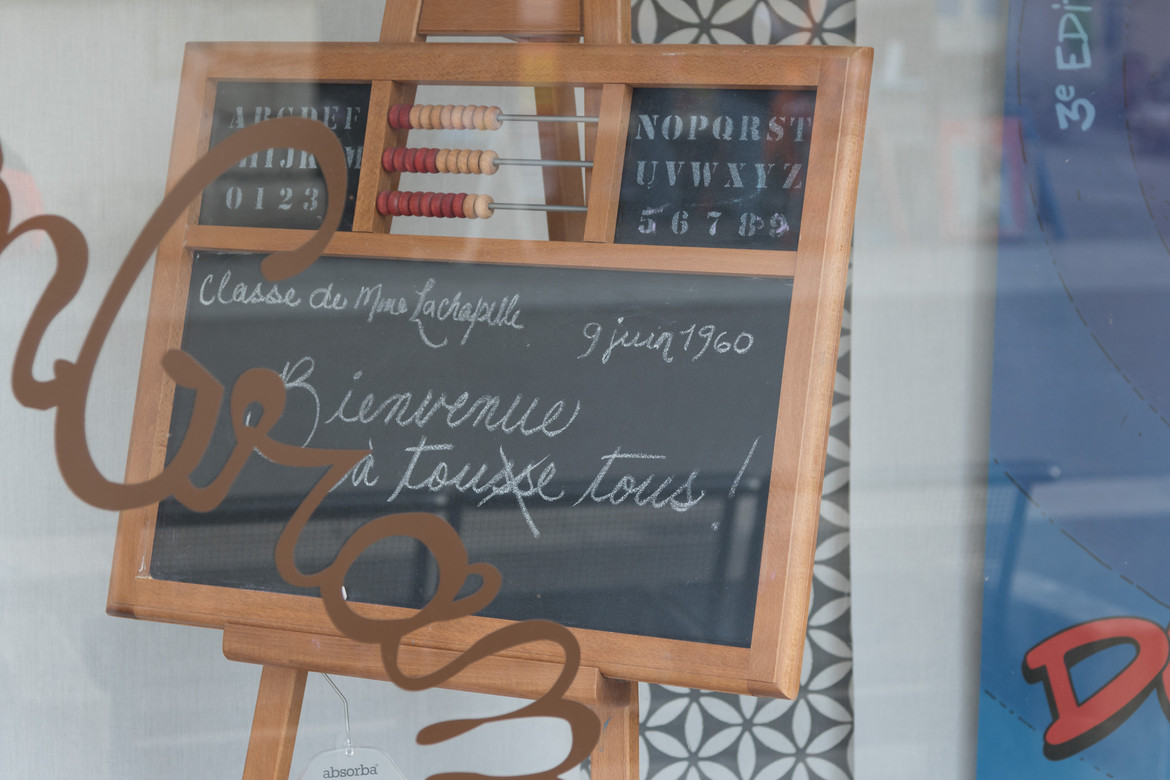 ABCDEF
HIJK M
0 1 2 3
NOPQRST
UVWXYZ
5 6 7 8 9
Classe de Mme Lachapelle
9 juin 1960
Bienvenue
à tousse tous !
absorba
3e EDI
D